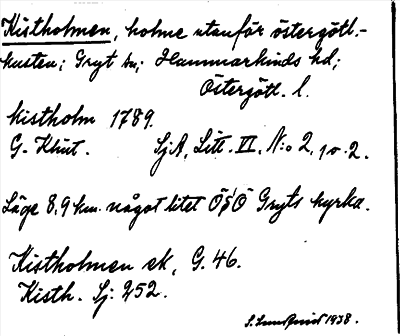 Kistholmen, holme utanför östergötl.-
kusten; Gryt sn; Hammarkinds hd;
Östergötl. l.
Kistholm 1789.
G. Klint. SjA, Litt. II. N:o 2, 1 o. 2.
Läge 8,9 km. något litet ÖSÖ Gryts kyrka.
Kistholmen ek, G. 46.
Kisth. Sj: 252.
S. Lundqvist 1938.